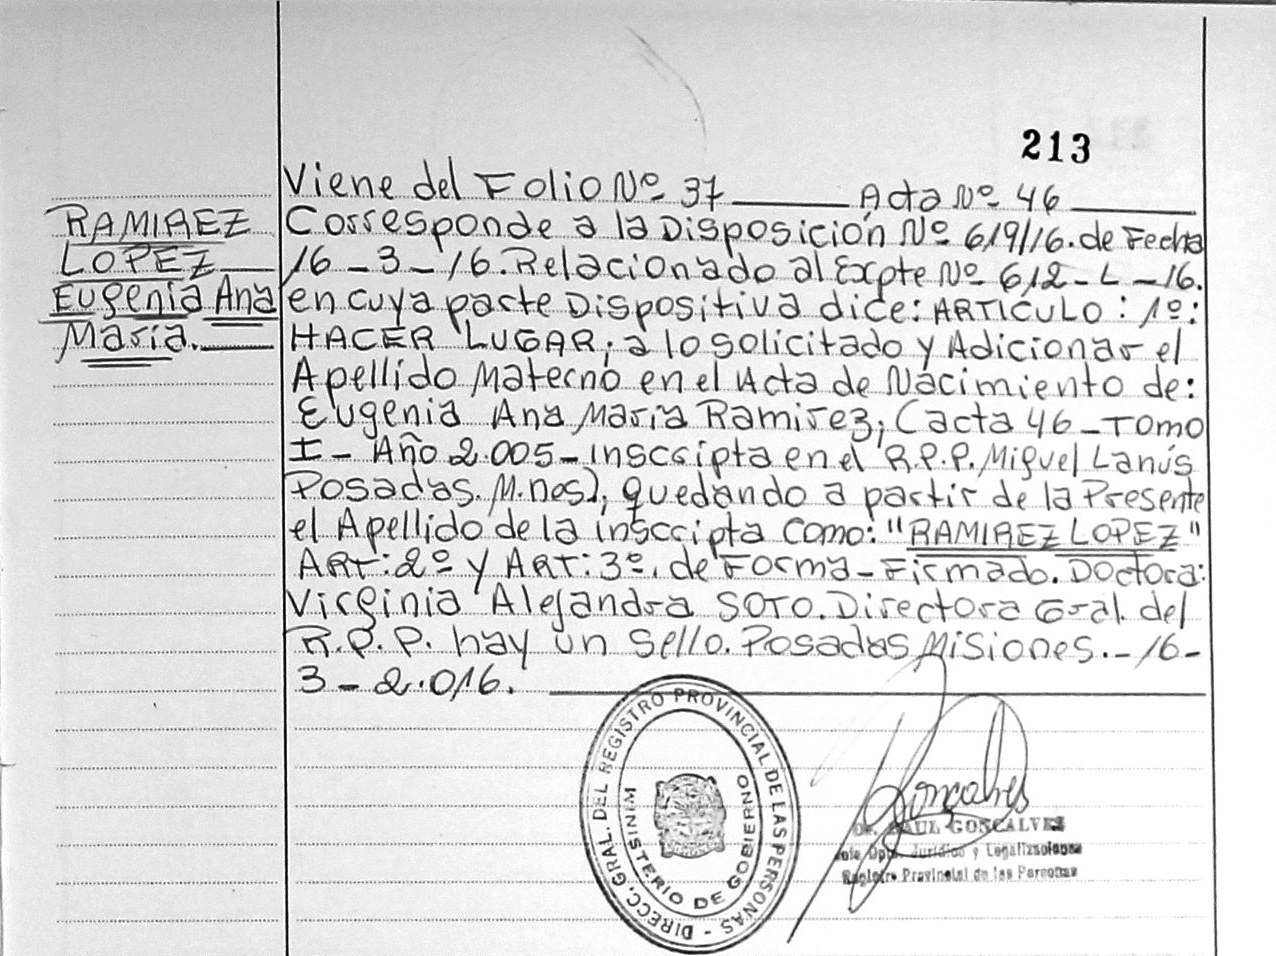 213
Viene del Folio Nº 37 ______ Acta Nº 46 ______
RAMIREZ
LOPEZ
Eugenia Ana
María.
Corresponde a la Disposición Nº 619/16. de Fecha
16 - 3 - 16. Relacionado al Expte Nº 612 - L - 16.
en cuya parte Dispositiva dice: ARTICULO : 1º:
HACER LUGAR; a lo solicitado y Adicionar el
Apellido Materno en el Acta de Nacimiento de:
Eugenia Ana María Ramirez, (acta 46 - Tomo
I - Año 2.005 - inscripta en el R.P.P. Miguel Lanús
Posadas. M.nes), quedando a partir de la Presente
el Apellido de la inscripta como: "RAMIREZ LOPEZ"
ART: 2º y ART: 3º. de Forma - Firmado. Doctora:
Virginia Alejandra SOTO. Directora Gral. del
R.P.P. hay un sello. Posadas Misiones. - 16 -
3 - 2.016.
DIRECC. GRAL. DEL REGISTRO PROVINCIAL DE LAS PERSONAS -
MINISTERIO DE GOBIERNO
Gonçalves
Dr. RAUL GONCALVES
Jefe Dpto. Jurídico y Legalizaciones
Registro Provincial de las Personas